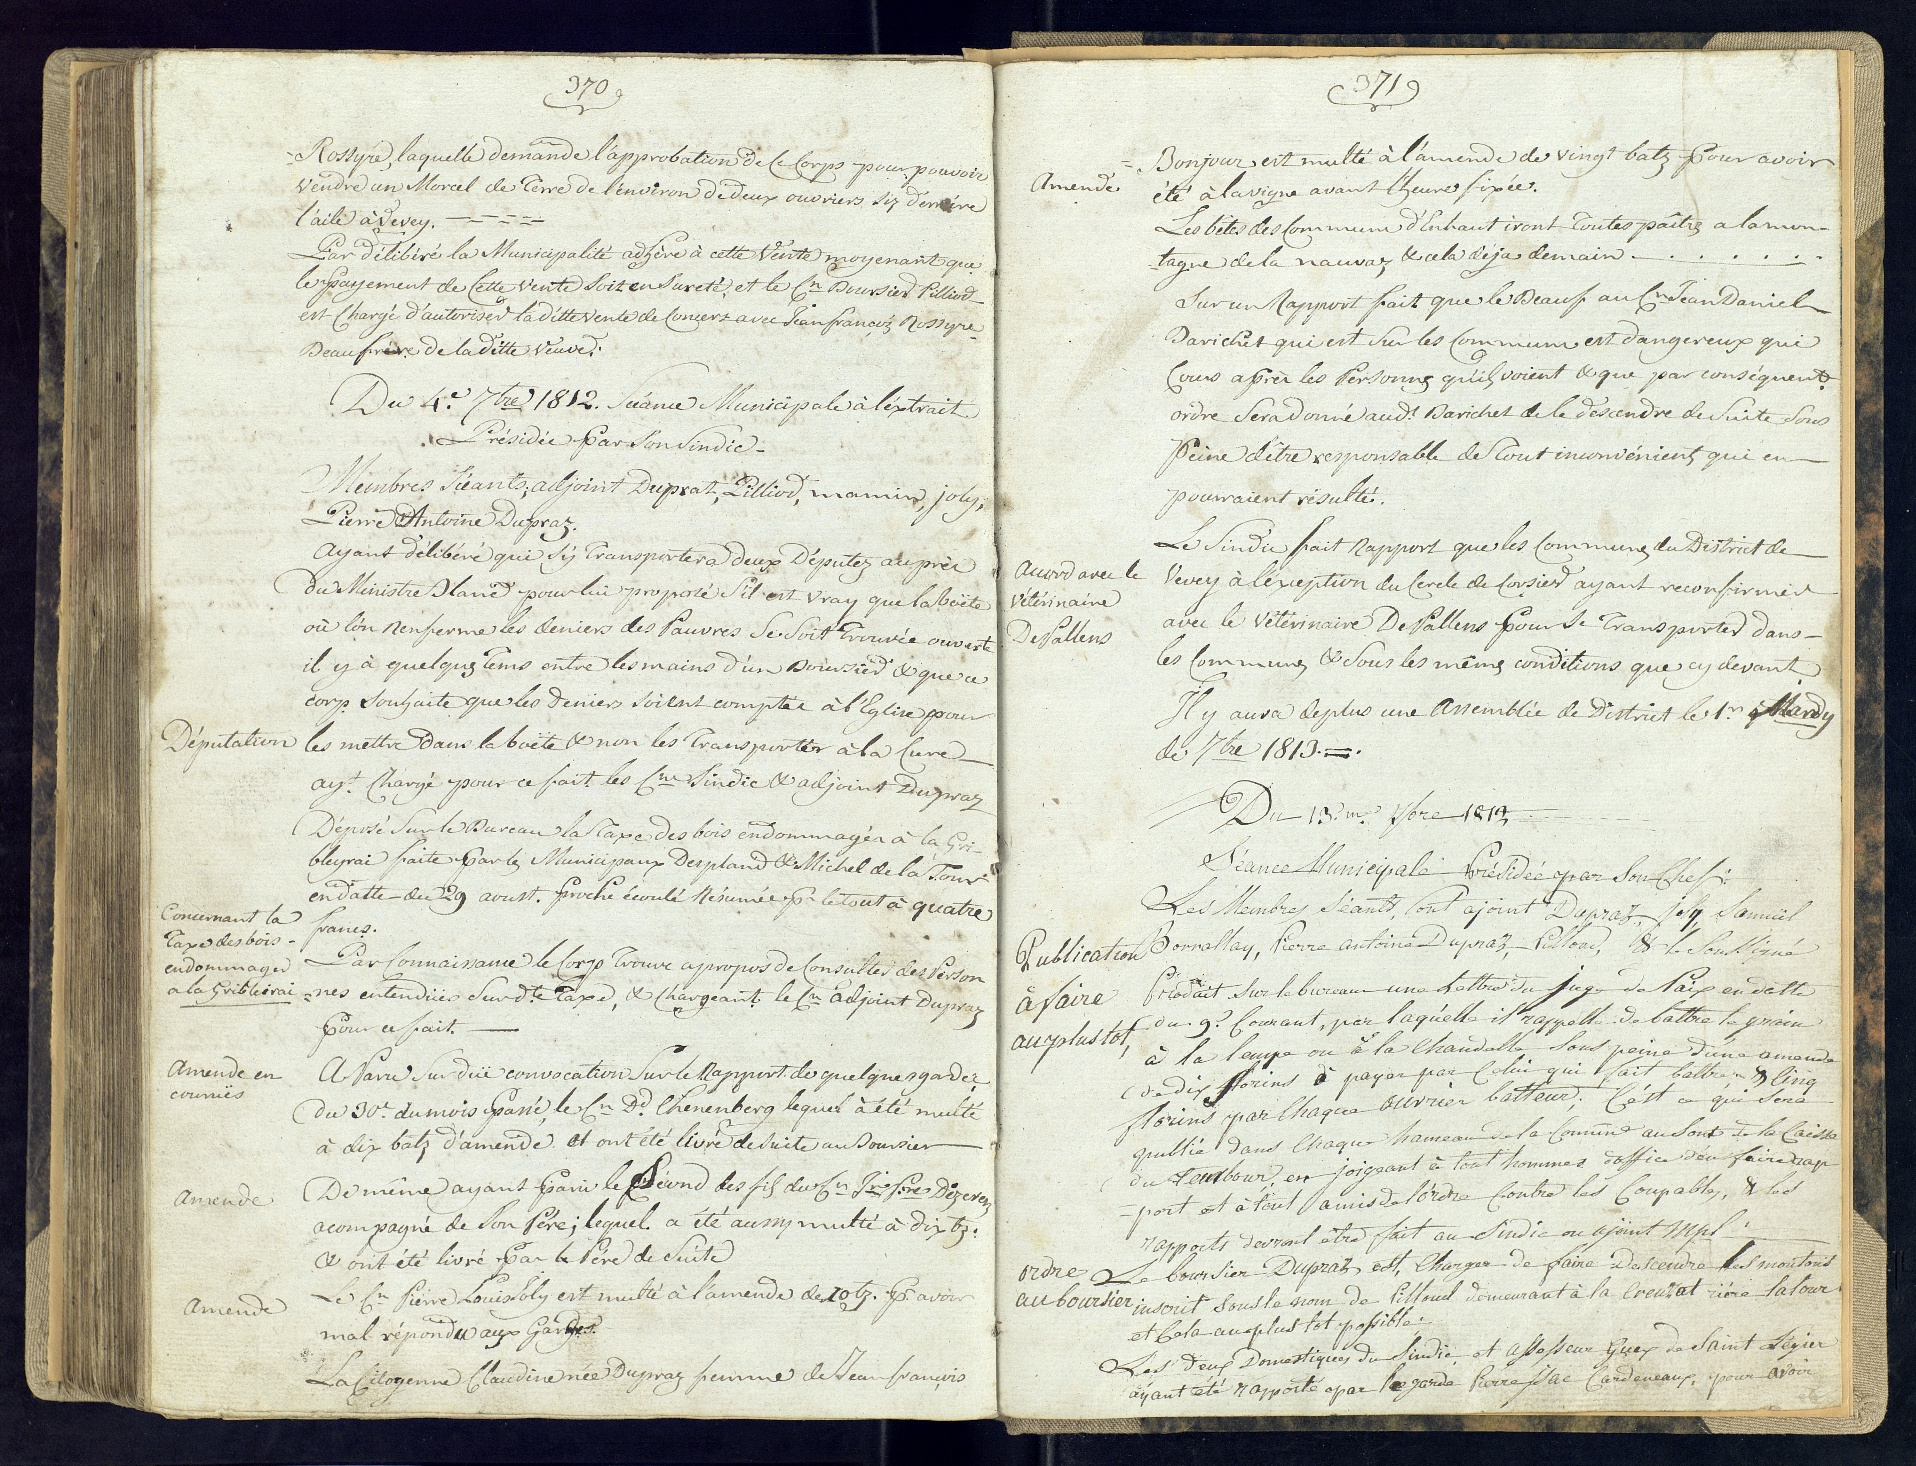 370
= Rossÿre, laquelle demande l'approbation de ce Corps pour pouvoir
vendre un Morcel de Terre de l'environ de deux ouvriers siz derrière
l'aile à Vevey. ----
Par délibéré la Municipalité adhère à cette Vente moyenant que
le payement de Cette vente soit en Sureté, et le Cn Boursier Pilliod
est Chargé d'autoriser la ditte vente de Concert avec Jean françois Rossyre
Beaufrère de la ditte veuve.
Du 4.e 7bre 1812. Séance Municipale à l'éxtrait.
Présidée par Son Sindic -
Membres Séants, adjoint Dupraz, Pilliod, mamin, joly,
Pierre Antoine Dupraz.
Ayant délibéré qui s'y Transportera deux Députez auprès
du Ministre Blanc pour lui proposé s'il est vray que la boëte
où l'on Renferme les deniers des Pauvres se soit Trouvée ouverte
il y à quelques Tems entre les mains d'un Boursier & que ce
corp. souhaite que les deniers soient comptée à l'Eglise pour
Députation
les mettre dans la boëte & non les Transporter à la Cure
ayt. Chargé pour ce fait les Cns Sindic & adjoint Dupraz
Déposé Sur le Bureau la Taxe des bois endommagés à la Gri-
bleyrai faite par les Municipaux Despland & Michel de la Tour
en datte du 29 aoust. proche écoulé Résumée pr le tout à quatre
francs.
Concernant la
Taxe des bois -
endommagés
a la Gribleirai
Par Connaissance le Corps Trouve apropos de Consulter des Person
= nes entendües Sur dte Taxe, & Chargeant le Cn adjoint Dupraz
pour ce fait. —
Amende en
courrües
A Paru Sur düe convocation Sur le Rapport de quelques gardes
du 30e. du mois passé, le Cn Dd Chenenberg lequel à été multé
à dix batz d'amende et ont été livré de suite au Boursier
Amende
De même ayant paru le Second des fils du Cn Jn frs Dezerez
acompagné de Son Père; lequel a été aussy multé à dix bz.
& ont été livré par le Père de suite
Amende
Le Cn Pierre Louis Joly est multé à l'amende de 10 bz. pr avoir
mal répondu aux Gardes.
La Citoyenne Claudine née Dupraz femme de Jean françois
371
Amende
= Bonjour est multé à l'amende de vingt batz pour avoir
été à la vigne avant l'heure fixée.
Les bêtes des Commum d'Enhaut iront Toutes paître a la mon-
tagne de la nauvaz & cela déja demain . . . . . .
Sur un Rapport fait que le Beauf au Cn Jean Daniel
Barichet qui est sur les Commum est dangereux qui
Cours après les Personnes qu'ils voient & que par conséquent
ordre Sera donné audt Barichet de le descendre de Suite Sous
Peine d'être responsable de Tout inconvénients qui en
pourraient résulté.
Acord avec le
Vétérinaire
De Pallens
Le Sindic fait Rapport que les Communes du District de
Vevey à l'éxeption du Cercle de Corsier ayant reconfirmér
avec le Vétérinaire De Pallens pour Se Transporter dans -
les Communes & Sous les mêmes conditions que cy devant
Il y aura de plus une Assemblée de District le 1er Mardy
de 7bre 1813. =.
Du 13.me 7bre 1812
Séance Municipale Présidée par Son Chef:
Les Membres Séants, Sont ajoint Dupraz, joly Samuël
Bovrallay, Pierre antoine Dupraz, Pilloud, & le Soussigné
Publication
à faire
au plus tot,
Produit sur le bureau une Lettre du juge de Paix en datte
du 9e Courant, par laquelle il rappelle de battre le grain
à la lampe ou à la Chandelle sous peine d'une amende
de dix florins à payer par Celui qui fait battre & Cinq
florins par Chaque ouvrier batteur. C'est ce qui sera
publié dans Chaque hameau de la Comune au Son de la Caisse
du Tembour, en joignant à tout hommes d'office d'en faire rap
= port et à tout amis de l'ordre Contre les Coupables, & les
rapports devront être fait au Sindic ou ajoint mpl.
ordre
au boursier
Le boursier Dupraz est Charger de faire descendre les moutons
inscrit sous le nom de Pilloud demeurant à la Creuzat rière la tour
et Cela au plus tot possible.
Les deux Domestiques du Sindic et assesseur Guex de Saint Légier
ayant été rapporté par le garde Pierre isac Cardeneaux, pour avoir